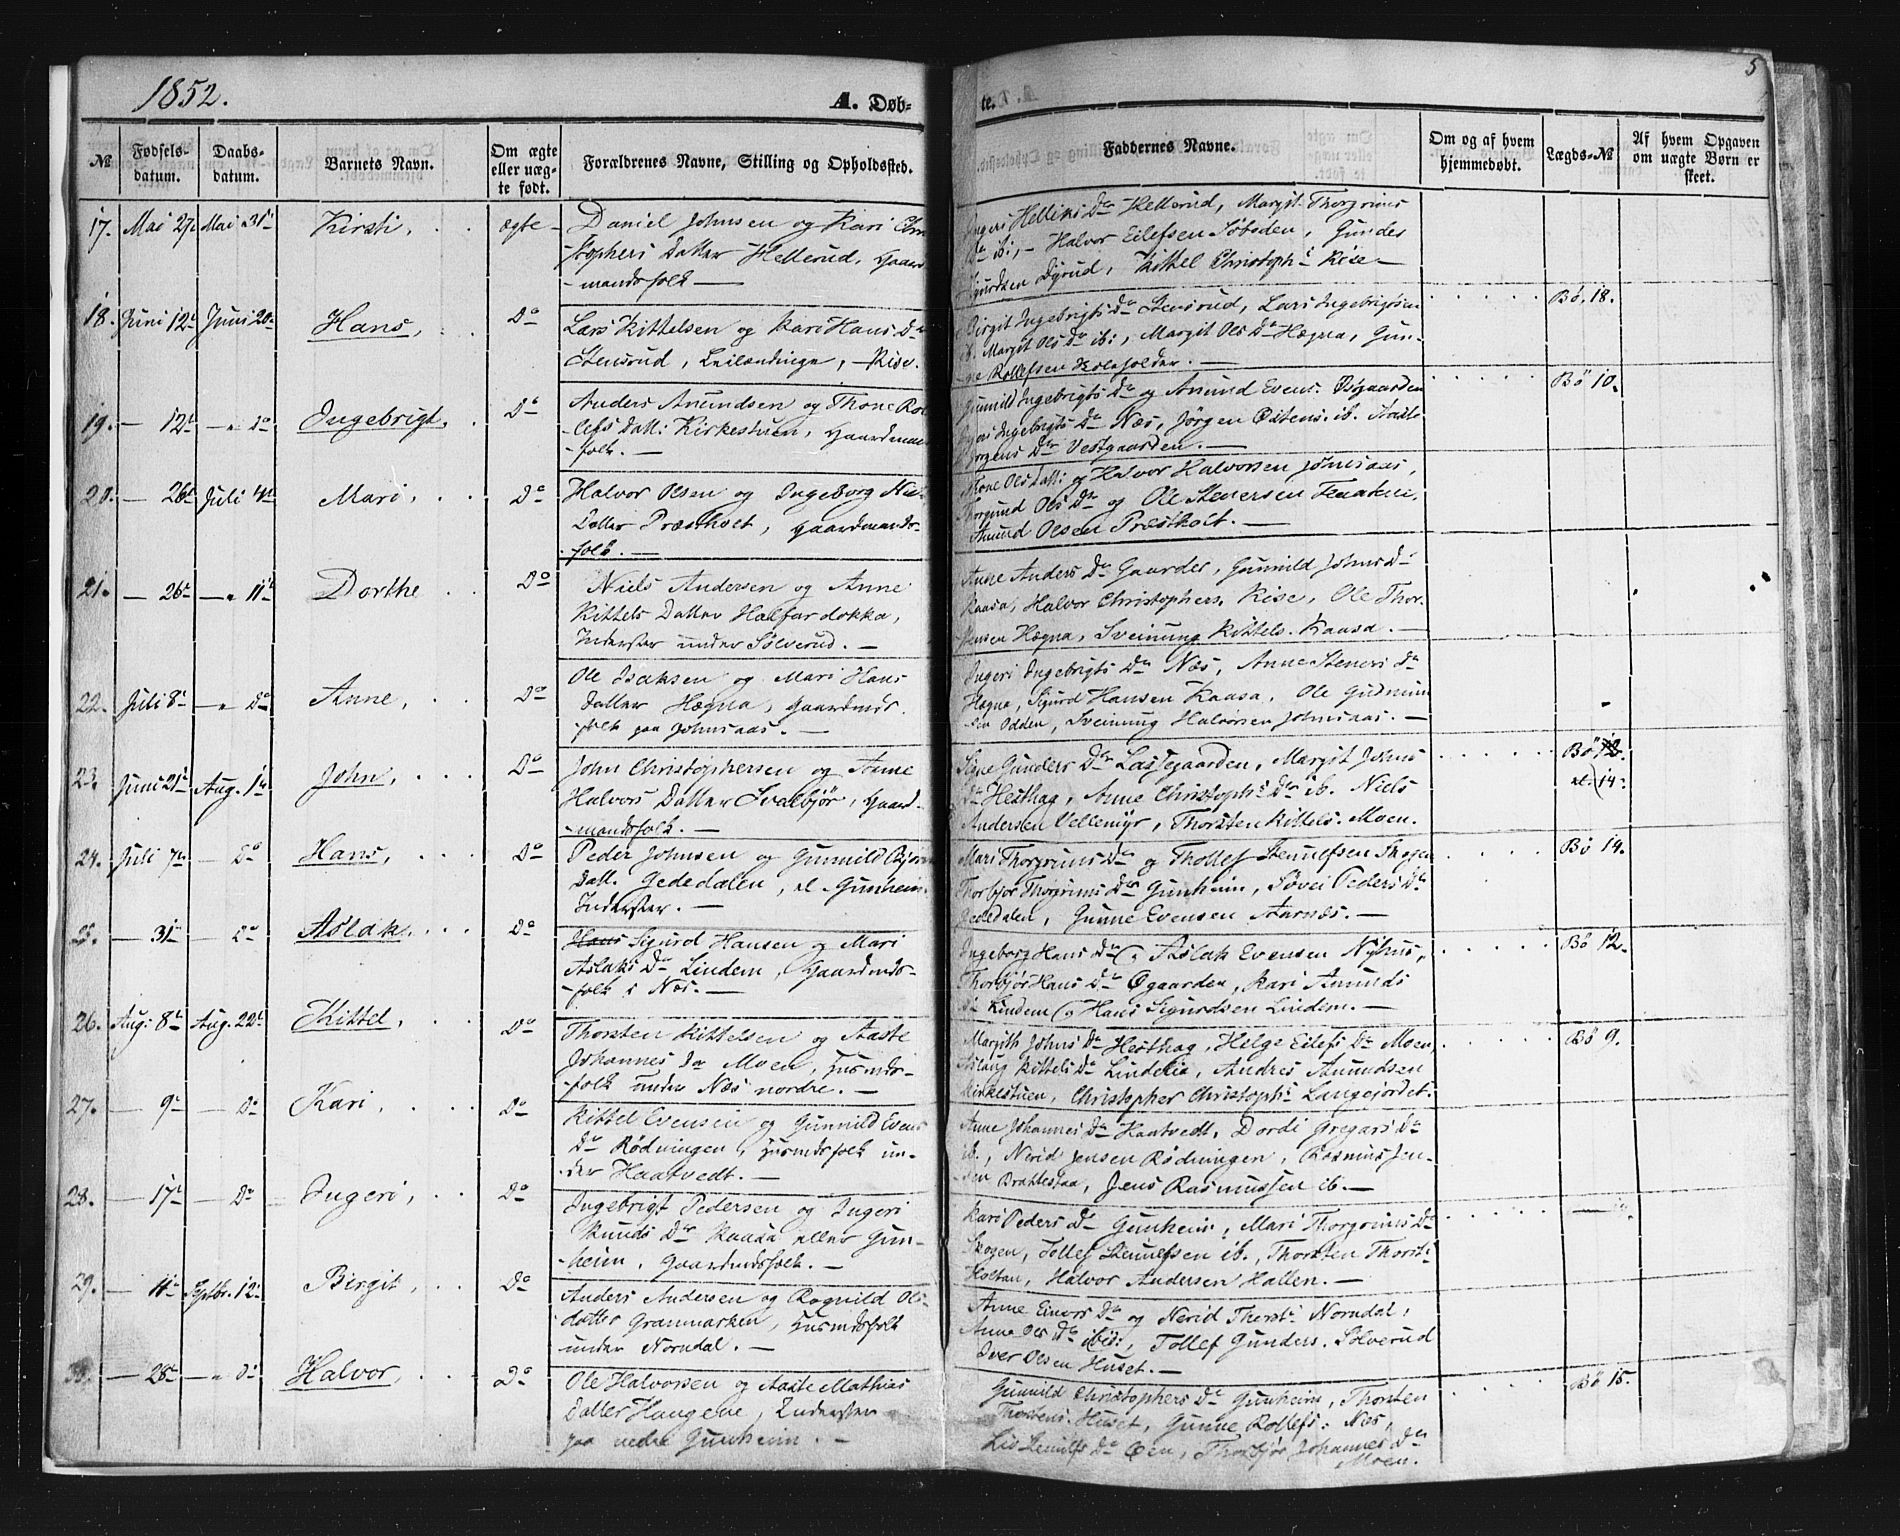 1852.
A. Døb-
te.
5
№
Fødsels-
datum.
Daabs-
datum.
Barnets Navn.
Om ægte
eller uæg-
te født.
Forældrenes Navne, Stilling og Opholdssted.
Faddernes Navne.
Om og af hvem
hjemmedøbt.
Lægds-№
Af hvem Opgaven
om uægte Børn er
skeet.
17. Mai 27 Mai 31 Kirsti, ægte
Daniel Johnsen og Kari Chri
stophers Datter Hellerud, Gaard
mandsfolk —
Helliks Da Hellerud, Margit Thorgrims
Da ib., Halvor Eilefsen Søboden, Gunder
Dyrud, Kittel Christophs Rise —
18. Juni 12 Juni 20 Hans, Do
Lars Kittelsen og Kari Hans Da
Stensrud, Leilændinge, Rise.
Birgit Ingebrigts Da Stensrud, Lars Ingebrigtsen
ib. Margit Ols Da ib., Margit Ols Da Hægna, Gun-
Rollefsen —
Bø, 18.
19. — 12 — " Do Ingebrigt. Do
Anders Anundsen og Thone Rol
lefs Datt: Kirkestuen, Gaardman
folk. —
Gunnild Ingebrigts Da og Anund Evens. Øvgaarden
Ingebrigts Da Næs, Jørgen Østens. ib. Aaste
Jørgens Da Vestgaarden. —
Bø 10.
20. — 26 Juli 4 Mari, Do
Halvor Olsen og Ingeborg Niels
Datter Præstholt, Gaardmands-
folk. —
Thone Ols Datt: og Halvor Halvorsen Johnsaas,
Thorgund Ols Da og Ole Stenersen
Anund Olsen Præstholt. —
21. — 26 — " 11 Dorthe Do
Niels Andersen og Anne
Kittels Datter Halfardokka,
Inderster under Sølverud. —
Anne Anders Da Gaarder, Gunnild Johns Da
Kaasa, Halvor Christophers. Rise, Ole Thor-
Hægna, Sveinung Kittels. Kaasa. —
22. Juli 8 — " Do Anne, Do
Ole Isaksen og Mari Hans
Datter Hægna, Gaardmds.
folk paa Johnsaas. —
Ingeri Ingebrigts Da Næs, Anne Steners Da
Hægna, Sigurd Hansen Kaasa, Ole Gudmun
Odden, Sveinung Halvorsen Johnsaas. —
23. Juni 21 Aug. 1 John, Do
John Christophersen og Anne
Halvors Datter Svalbjør, Gaard-
mandsfolk. —
Signe Gunders Da Lassegaarden, Margit Johns
Da Hesthag, Anne Christophs Da ib. Niels
Andersen Vellemyr, Thorsten Kittels. Moen.
Bø 12
el. 14.
24. Juli 7 — Do Hans, Do
Peder Johnsen og Gunnild Bjørns
Datt. Gededalen, el Gunheim.
Inderster. —
Mari Thorgrims Da og Thollef Stenulfsen Skogen
Thorbjør Thorgrims Da Gunheim, Søvei Peders Da
Gededalen, Gunne Evensen Aarnæs. —
Bø 14.
25. — 31 — Do Aslak, Do
Hans Sigurd Hansen og Mari
Aslaks Da Lindem, Gaardmds-
folk i Næs. —
Ingeborg Hans Da og Aslak Evensen Nyhus,
Thorbjør Hans Da Øgaarden, Kari Anunds
Da Lindem og Hans Sigurdsen Lindem. —
Bø 12.
26. Aug: 8 Aug. 22 Kittel, Do
Thorsten Kittelsen og Aaste
Johannes Da Moen, Husmds-
folk under Næs nordre. —
Margith Johns Da Hesthag, Helge Eilefs Da Moen,
Aslaug Kittels Da Lindelia, Andres Anundsen
Kirkestuen, Christopher Christophs Langejordet.
Bø 9.
27. — 9 — Do Kari, Do
Kittel Evensen og Gunnild Evens
Da Rødningen, Husmdsfolk un-
der Haatvedt. —
Anne Johannes Da Haatvedt, Dordi Gregars Da
ib., Nerid Jensen Rødningen, Rasmus Jen-
sen Brattestaa, Jens Rasmussen ib. —
28. — 17 — Do Ingeri, Do
Ingebrigt Pedersen og Ingeri
Knuds Da Kaasa eller Gun-
heim, Gaardmdsfolk. —
Kari Peders Da Gunheim, Mari Thorgrims Da
Skogen, Tollef Stenulfsen ib., Thorsten Thorst.
Holtan, Halvor Andersen Hallen. —
29. — 11 Septbr. 12 Birgit, Do
Anders Andersen og Rognild Ols
datter Granmarken, Husmdsfolk
under Norndal. —
Anne Einars Da og Nerid Thorst. Norndal,
Anne Ols Da ibid:, Tollef Gunders. Sølverud
Iver Olsen Huset. —
30. — 28 — " Do Halvor, Do
Ole Halvorsen og Aaste Mathias
Datter Haugene, Inderster
paa nedre Gunheim. —
Gunnild Christophers Da Gunheim, Thorsten
Thorstens. Huset, Gunne Rollefs: Næs,
Liv Stenulfs Da Øen, Thorbjør Johannes Da
Moen.
Bø 15.